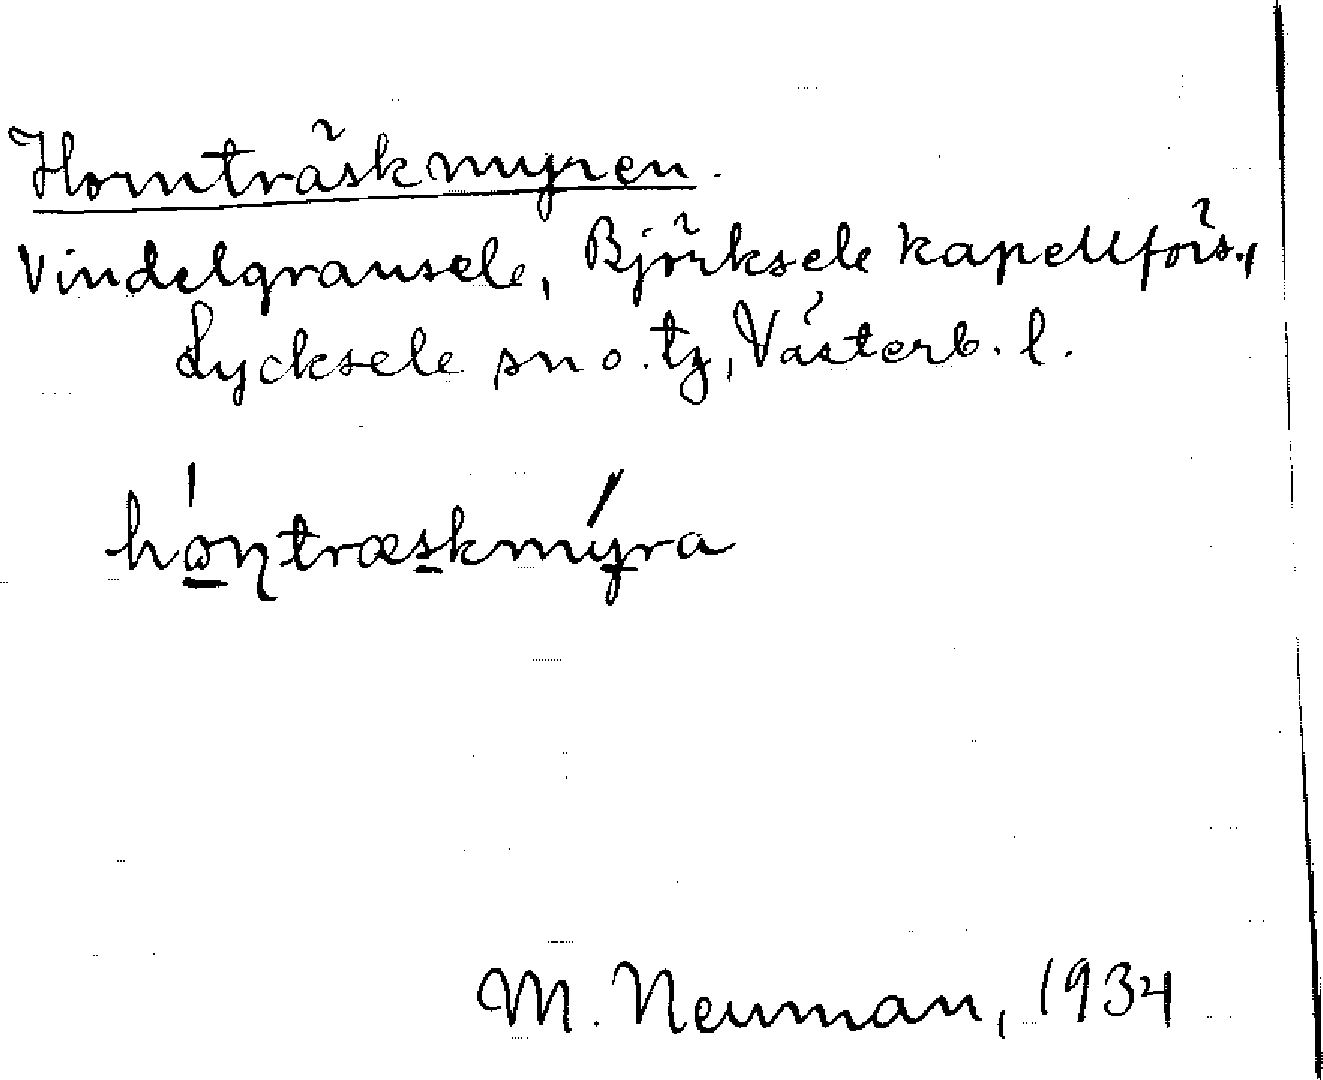 Hornträskmyren.
Vindelgransele, Björksele kapellförs.,
Lycksele sn o. tg, Västerb. l.
hɷɳtræskmýra
M. Neuman, 1934